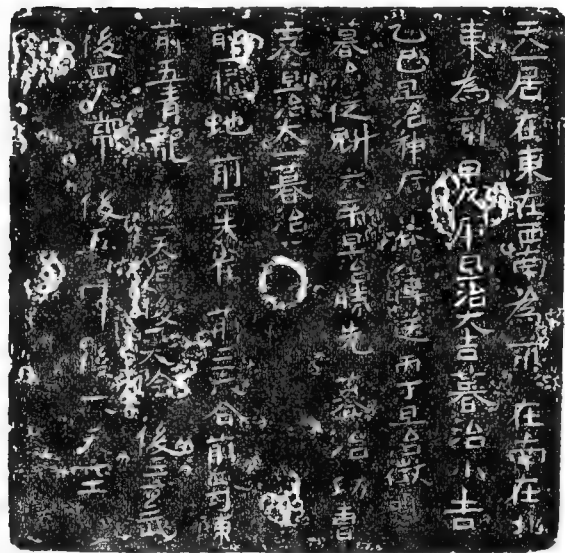 天一居在東在西南為前在南在北
東為前甲戊庚旦治大吉暮治小吉
乙己旦治神后暮治傳送丙丁旦治徵明
暮治從魁六辛旦治勝先暮治功曹
壬癸旦治太一暮治
前一 前二朱雀前三六合前四勾陳
前五青龍後一天后後二大陰後三玄武
後四大常後五白虎後六天空